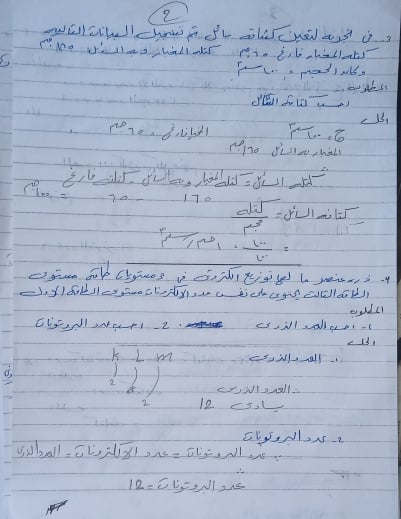 2
3- فى تجربة لتعيين كثافة سائل تم تسجيل البيانات التالية
كتلة المخبار فارغ 60 جم كتلة المخبار وبه السائل 160 جم
وكان الحجم = 100 سم3
المطلوب
احسب كثافة السائل
الحل
ح = 100 سم3 المخبار فارغ = 60 جم
المخبار به السائل 160 جم
كتلة السائل = كتلة المخبار وبه السائل - كتلته فارغ
160 - 60 = 100 جم
كثافة السائل = كتلة
حجم
= 100
100
= 1 جم / سم3
4- ذرة عنصر ما لها توزيع الكترونى فى 3 مستويات طاقة مستوى
الطاقة الثالث يحتوى على نفس عدد الالكترونات مستوى الطاقة الاول
المطلوب
1- احسب العدد الذرى 2- احسب عدد البروتونات
الحل
1- العدد الذرى K L M
2 8 2
∴ العدد الذرى
يساوى 12
2- عدد البروتونات
∵ عدد البروتونات = عدد الالكترونات = العدد الذرى
∴ عدد البروتونات = 12